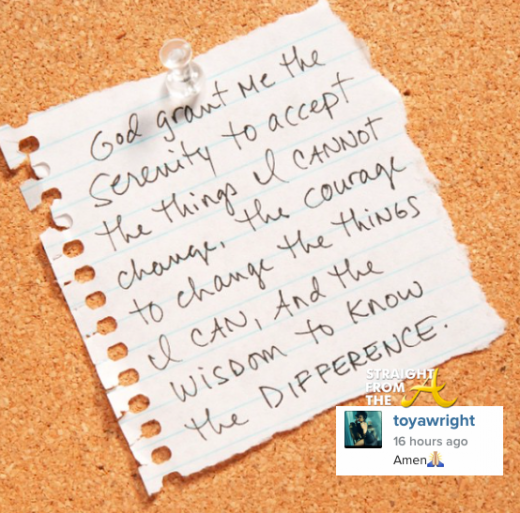 God grant Me the
Serenity to accept
the things I CANNOT
change, the courage
to change the thiNGS
I CAN, And the
WISDOM to KNOW
the DIFFERENCE.
STRAIGHT
FROM
THE A
toyawright
16 hours ago
Amen🙏